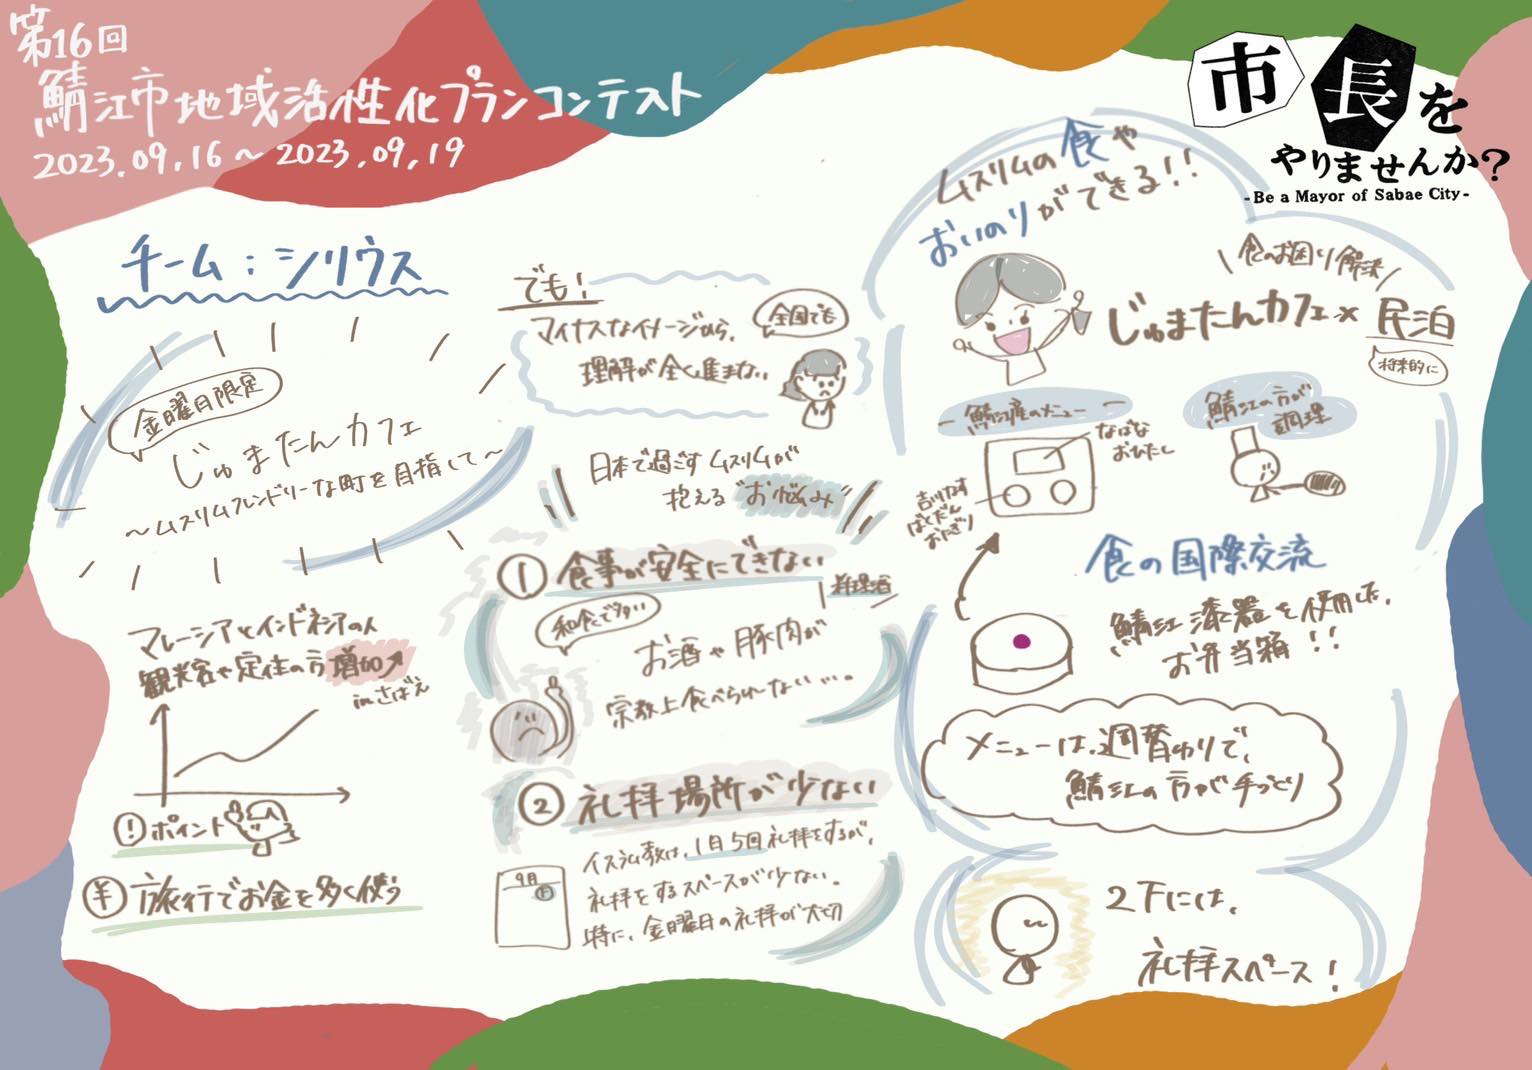 第16回
鯖江市地域活性化プランコンテスト
2023.09.16～2023.09.19
市長を
やりませんか？
-Be a Mayor of Sabae City-
チーム：シリウス
金曜日限定
じゅまたんカフェ
～ムスリムフレンドリーな町を目指して～
マレーシアとインドネシアの人
観光客や定住の方増加↗
inさばえ
！ポイント
¥ 旅行でお金を多く使う
でも！
マイナスなイメージから、
全国でも
理解が全く進まない
日本で過ごすムスリムが
抱える"お悩み"
① 食事が安全にできない
料理酒
和食で多い
お酒や豚肉が
宗教上食べられない…。
② 礼拝場所が少ない
イスラム教は、1日5回礼拝をするが、
礼拝をするスペースが少ない。
特に、金曜日の礼拝が大切
9月
ムスリムの食や
おいのりができる！！
食のお困り解決
じゅまたんカフェ×民泊
将来的に
鯖江産のメニュー
なばな
おひたし
吉川ナす
ばくだん
おにぎり
鯖江の方が
調理
食の国際交流
鯖江漆器を使用した、
お弁当箱！！
メニューは、週替わりで、
鯖江の方が手づくり
2Fには、
礼拝スペース！